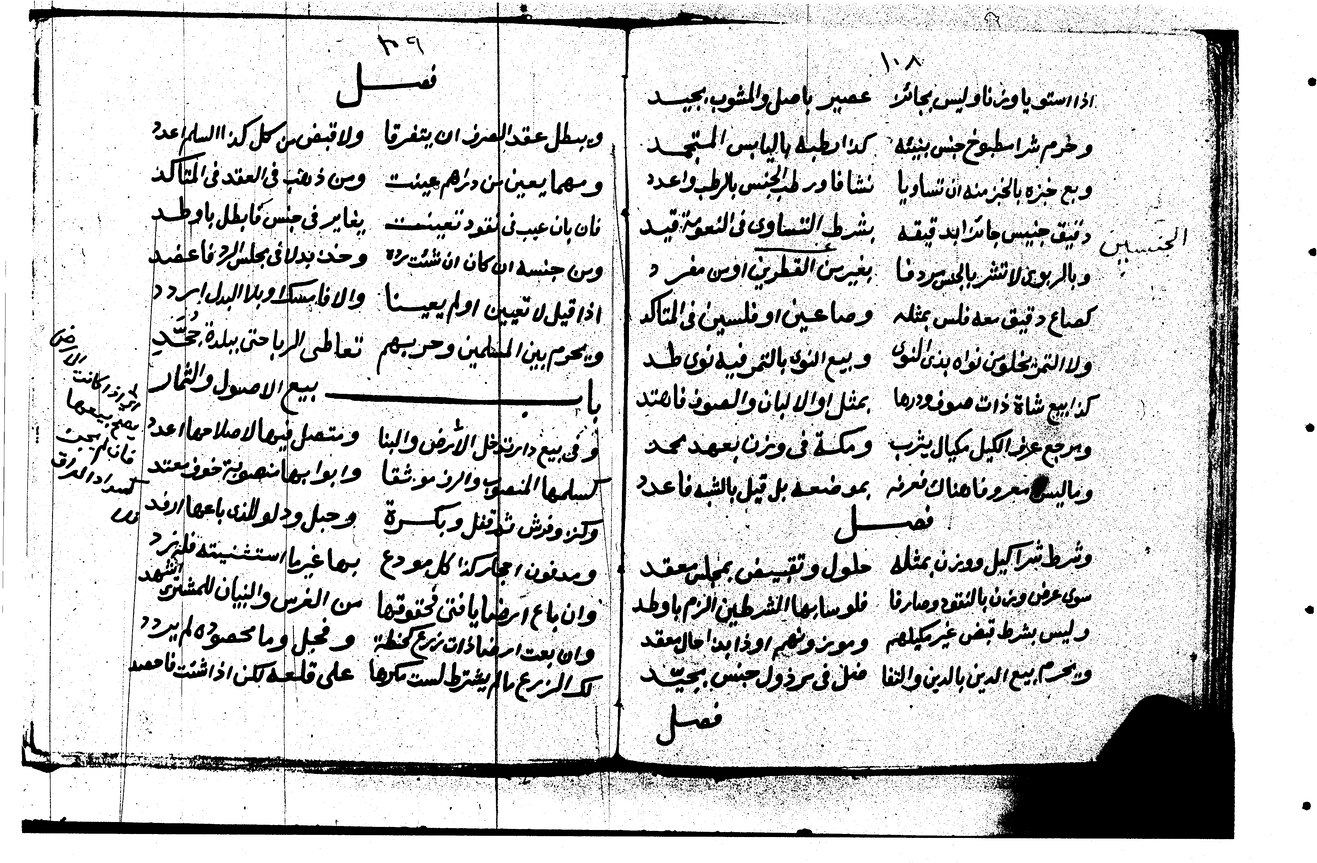 ١٠٨
اذا استويا وزنا وليس بجائز عصير باصل والمشوب بجيد
وحرم شرا مطبوخ جنس بنيئه كذا رطبه باليابس المتجمد
وبع خبزه بالخبز منه ان تساويا نشافا ورطب الجنس بالرطب واعدد
دقيق جنيس جائزا بدقيقه بشرط التساوي في النعومة قيد
الجنسين
وبالربوي لا تشر بالجنس مردفا بغير من القطرين او من مفرد
كصاع دقيق معه فلس بمثله وصاعين او فلسين في المتاكد
ولا التمر يخلو من نواه بذي النوى وبيع النوى بالتمر فيه نوى طد
كذا بيع شاة ذات صوف ودرها بمثل او الالبان والصوف فاهتد
ومرجع عرف الكيل مكيال يثرب ومكة في وزن بعهد محمد
وما ليس معروفا هناك فعرفه بموضعه بل قيل بالشبه فاعدد
فصل
وشرط شرا كيل ووزن بمثله حلول وتقبيض بمجلس معقد
سوى عرض وزن بالنقود وصارفا فلوسا بها الشرطين الزم باوطد
وليس بشرط قبض غير مكيلهم وموزونهم او ذا بدا حال معقد
ويحرم بيع الدين بالدين والتفا ضل في مرذول جنس بجيد
فصل
١٠٩
فصل
ويبطل عقد الصرف ان يتفرقا ولا قبض من كل كذا السلم اعدد
ومهما يعين من دراهم عينت ومن ذهب في العقد في المتاكد
فان بان عيب في نقود تعينت يغاير في جنس فابطل باوطد
ومن جنسه ان كان ان شئت رده وخذ بدلا في مجلس الرد فاعقد
اذا قيل لا تعيين او لم يعينا والا فامسك او بلا البدل اردد
ويحرم بين المسلمين وحربهم تعاطي الربا حتى ببلدة جحد
باب بيع الاصول والثمار
وفي بيع دار تدخل الارض والبنا ومتصل فيها لاصلاحها اعدد
كسلمها المنصوب والرف موثقا وابوابها منصوبة خوف معتد
وكنز وفرش ثم قفل وبكرة وحبل ودلو للذي باعها ارفد
ومدفون احجار كذا كل مودع بها غير ما استثنيته فليزد
وان باع ارضا يا فتى فحقوقها من الغرس والبنيان للمشتري اشهد
وان بعت ارضا ذات زرع كحنطة وفجل وما محصوده لم يردد
لك الزرع ما لم يشترط لست مكرها على قلعه لكن اذا شئت فاحصد
الارض
اذا كانت
يصح بيعها
فان لم يجز
كسواد العراق